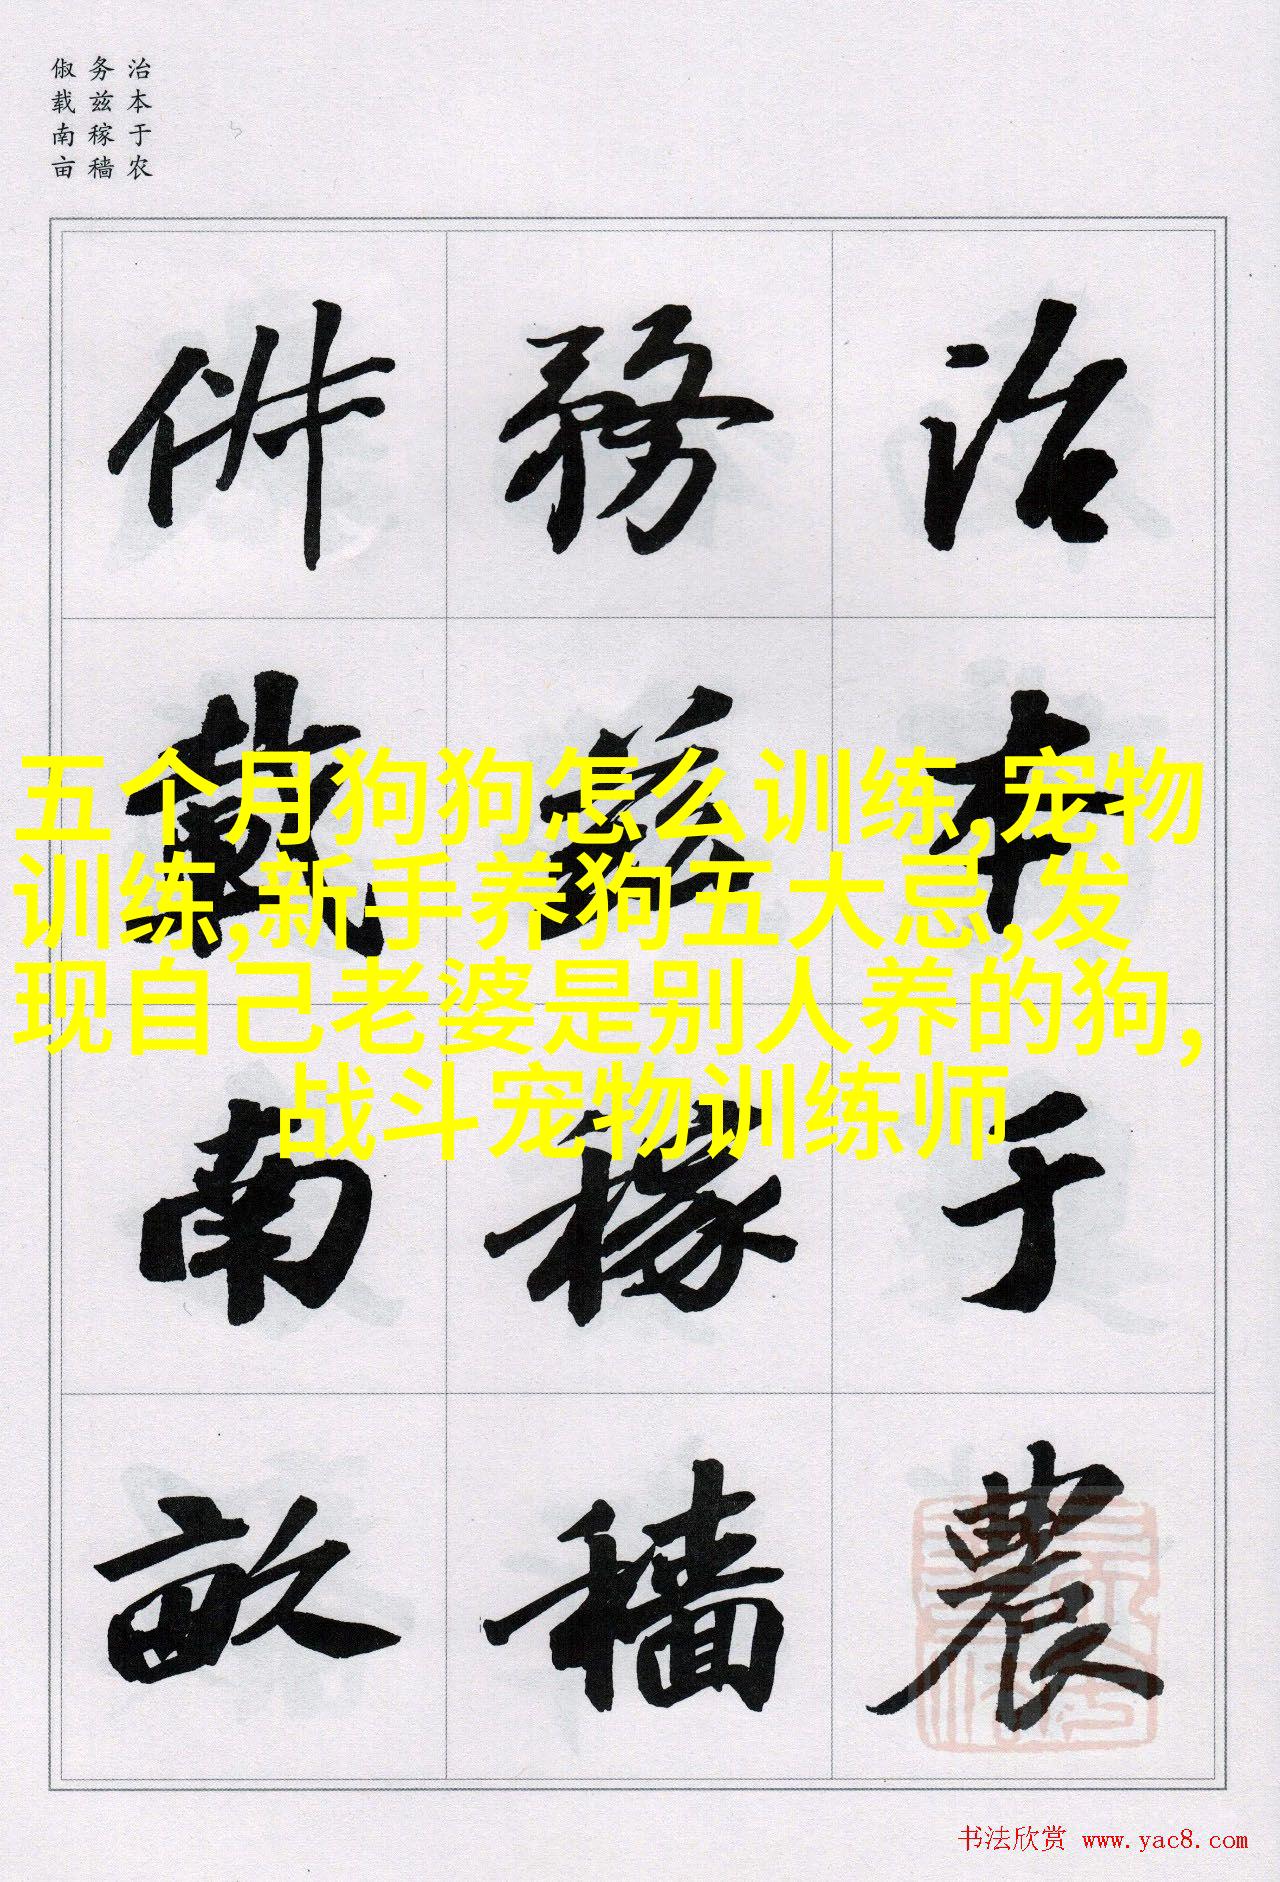 治本于农
务兹稼穑
俶载南亩
治本于農
務茲稼穡
俶載南畝
五个月狗狗怎么训练,宠物
训练,新手养狗五大忌,发
现自己老婆是别人养的狗,
战斗宠物训练师
书法欣赏 www.yac8.com